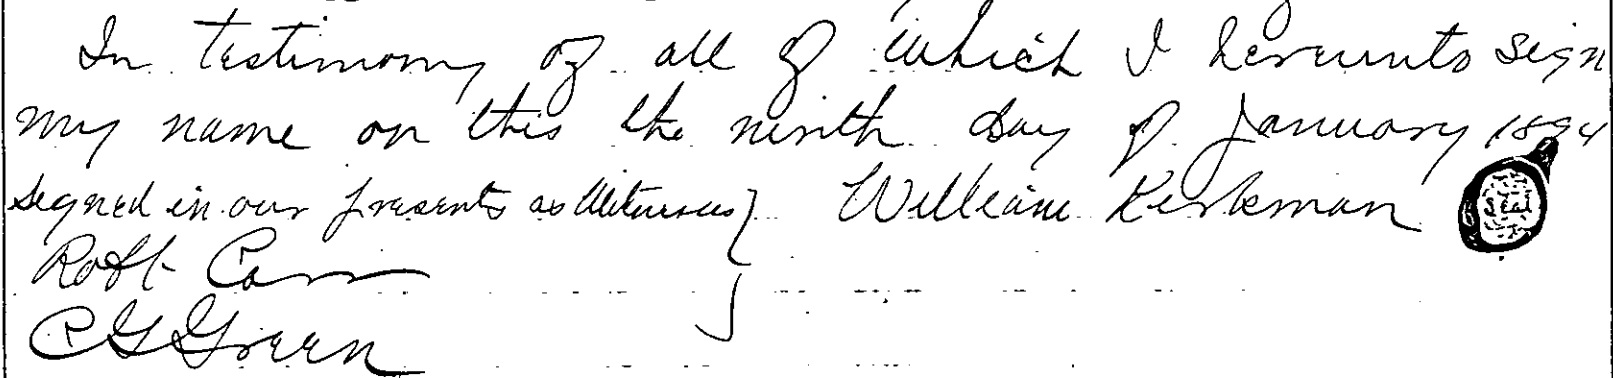 In testimony of all of which I hereunto sign
my name on this the ninth day of January 1894
signed in our presents as Witnesses } William Kirkman Seal
Robt Carr
C G Green